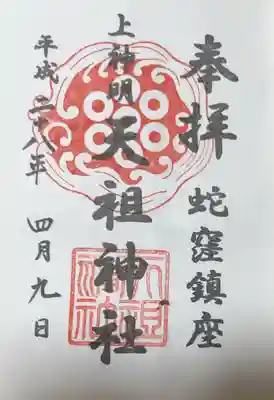 奉拝
蛇窪鎮座
上神明
天祖神社
平成二十八年
四月九日